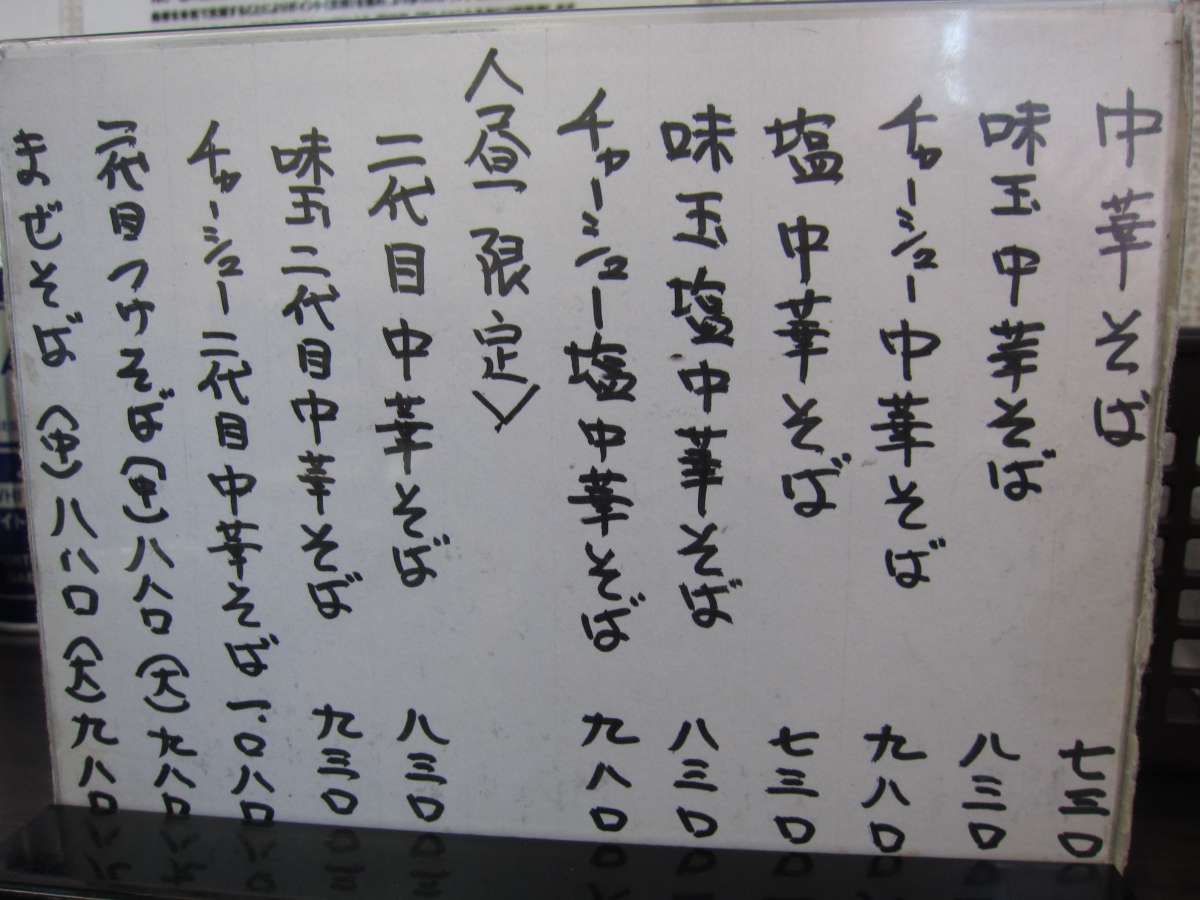 中華そば 七三〇
味玉中華そば 八三〇
チャーシュー中華そば 九八〇
塩中華そば 七三〇
味玉塩中華そば 八三〇
チャーシュー塩中華そば 九八〇
〈昼限定〉
二代目中華そば 八三〇
味玉二代目中華そば 九三〇
チャーシュー二代目中華そば 一、〇八〇
二代目つけそば(中)八八〇(大)九八〇
まぜそば(中)八八〇(大)九八〇